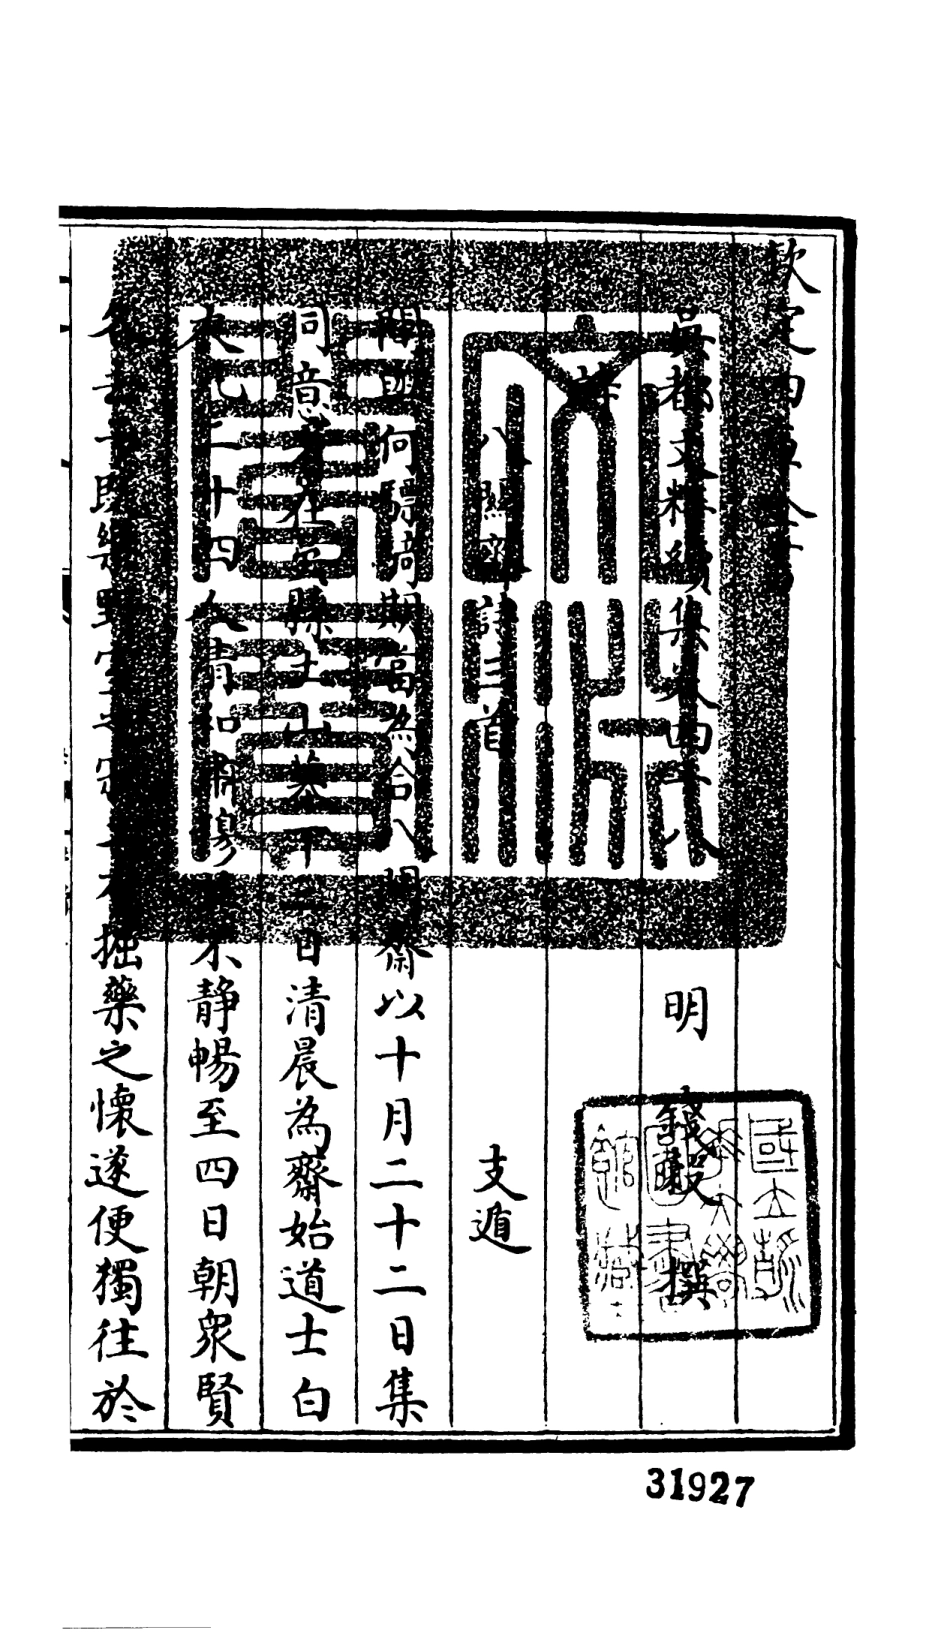 欽定四庫全書
吳都文粹續集卷四十八
明 錢穀 撰
詩
八關齋詩三首 支遁
間與何驃騎期當為合八關齋以十月二十二日集
同意者在吳縣土山墓下三日清晨為齋始道士白
衣凡二十四人清和肅穆莫不靜暢至四日朝衆賢
各去余既樂野室之寂又有掘藥之懷遂便獨往於
國立
31927